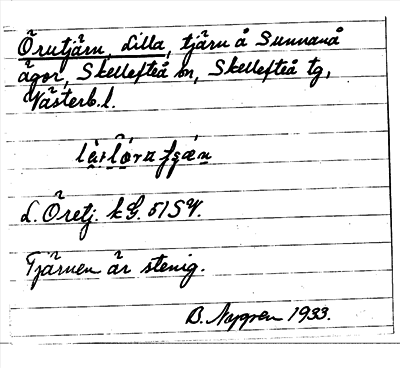 Örutjärn, Lilla, tjärn å Sunnanå
ägor, Skellefteå sn, Skellefteå tg,
Västerb. l.
L. Öretj. kG. 51SV.
Tjärnen är stenig.
B. Nygren 1933.